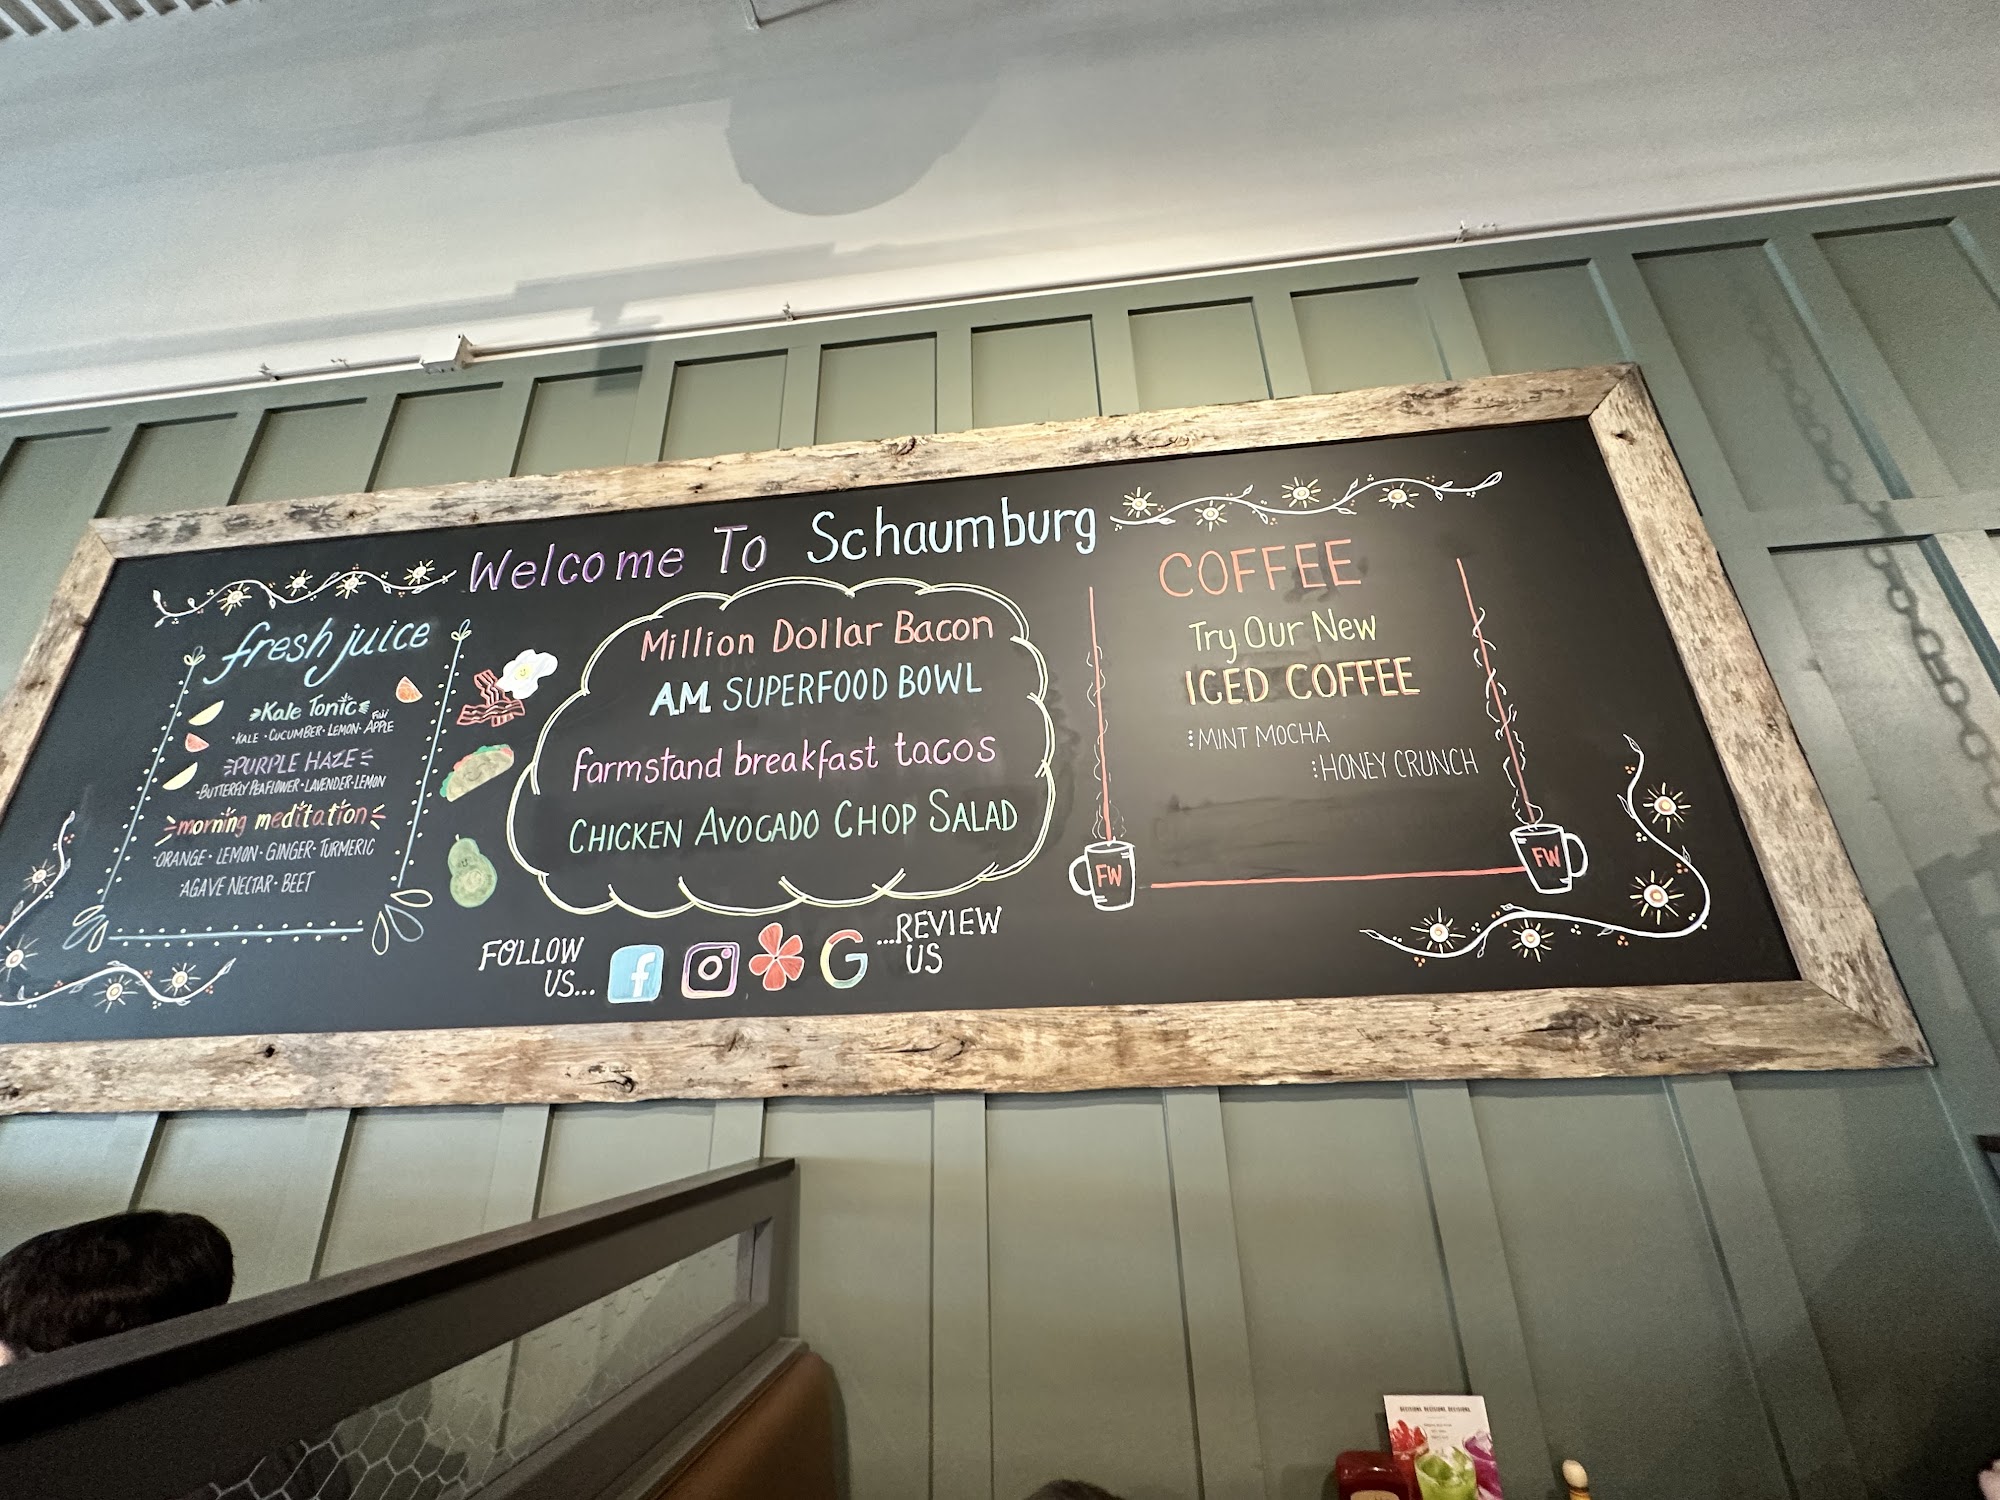 Welcome To Schaumburg
fresh juice
Kale Tonic
·KALE ·CUCUMBER· LEMON· FUJI APPLE
PURPLE HAZE
·BUTTERFLY PEAFLOWER·LAVENDER·LEMON
morning meditation
·ORANGE· LEMON· GINGER· TURMERIC
·AGAVE NECTAR· BEET
Million Dollar Bacon
A.M. SUPERFOOD BOWL
farmstand breakfast tacos
CHICKEN AVOCADO CHOP SALAD
FOLLOW
US...
f
G
...REVIEW
US
COFFEE
Try Our New
ICED COFFEE
MINT MOCHA
HONEY CRUNCH
FW
FW
DECISIONS, DECISIONS, DECISIONS.